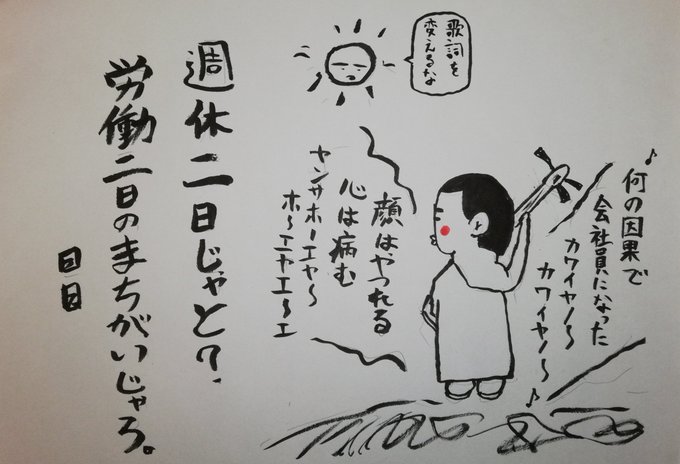 歌詞を
変えるな
♪何の因果で
会社員になった
カワイヤノ〜
カワイヤノ〜♪
顔はやつれる
心は病む
ヤンサホーエヤ〜
ホ〜エヤエ〜エ
週休二日じゃと?、
労働二日のまちがいじゃろ。